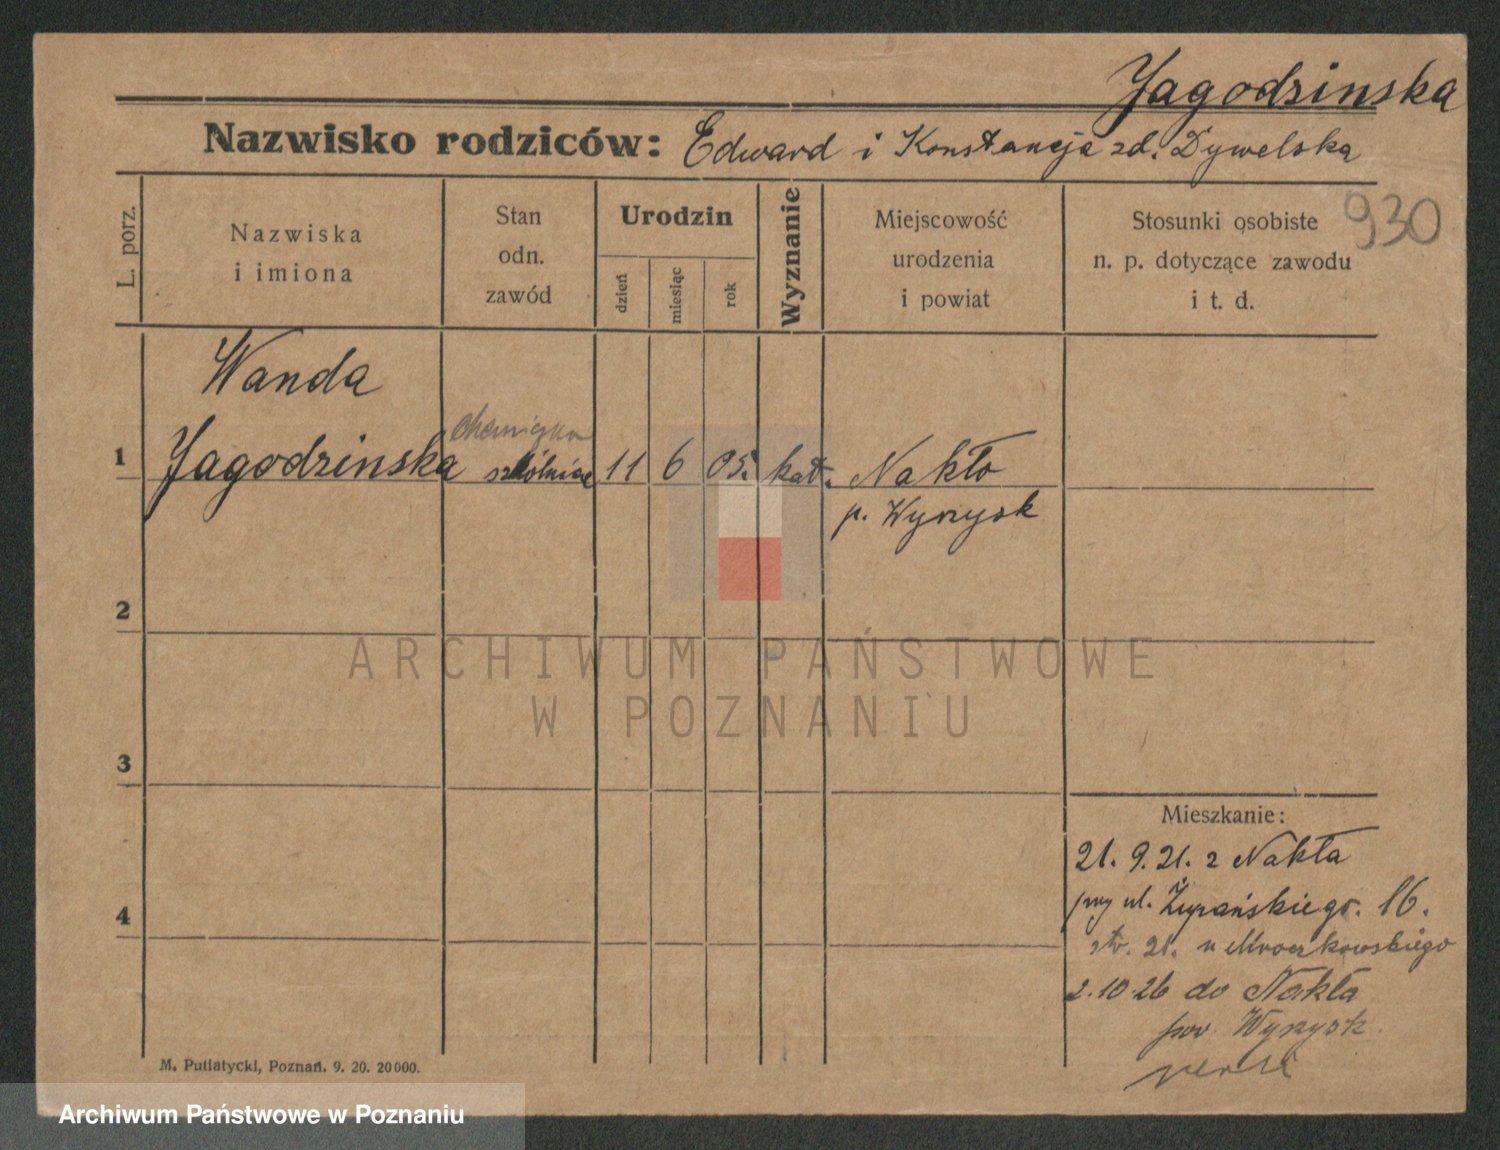 Jagodzinska
Nazwisko rodziców: Edward i Konstancja zd. Dywelska
930
L. porz.
Nazwiska
i imiona
Stan
odn.
zawód
Urodzin
dzień
miesiąc
rok
Wyznanie
Miejscowość
urodzenia
i powiat
Stosunki osobiste
n. p. dotyczące zawodu
i t. d.
Wanda
chemiczka
1 Jagodzinska 11 6 05. kat. Nakło
p. Wyrzysk
2
3
4
Mieszkanie:
21. 9. 21. z Nakła
przy ul. Żupańskiego. 16.
str. 21. u Mroczkowskiego
2.10.26 do Nakła
pow. Wyrzysk.
M. Putiatycki, Poznań. 9. 20. 20000.
ARCHIWUM PAŃSTWOWE
W POZNANIU
Archiwum Państwowe w Poznaniu